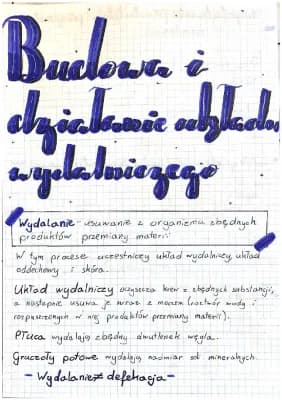 Budowa i
działanie układu
wydalniczego
Wydalanie - usuwanie z organizmu zbędnych
produktów przemiany materii
W tym procesie uczestniczy układ wydalniczy, układ
oddechowy i skóra.
Układ wydalniczy oczyszcza krew z zbędnych substancji,
a następnie usuwa je wraz z moczem (roztwór wody i
rozpuszczonych w niej produktów przemiany materii).
Płuca wydalają zbędny dwutlenek węgla.
Gruczoły potowe wydalają nadmiar soli mineralnych.
- Wydalanie ≠ defekacja -